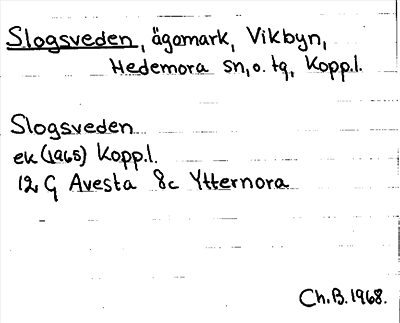 Slogsveden, ägomark, Vikbyn,
Hedemora sn, o. tg, Kopp.l.
Slogsveden
ek (1965) Kopp.l.
12 G Avesta 8c Ytternora
Ch.B. 1968.